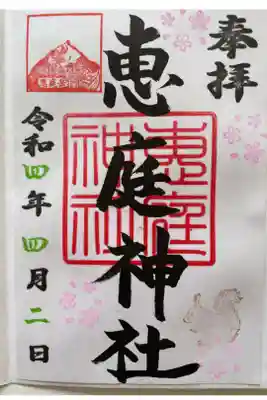 奉拝
恵庭神社
恵庭神社
令和四年四月二日